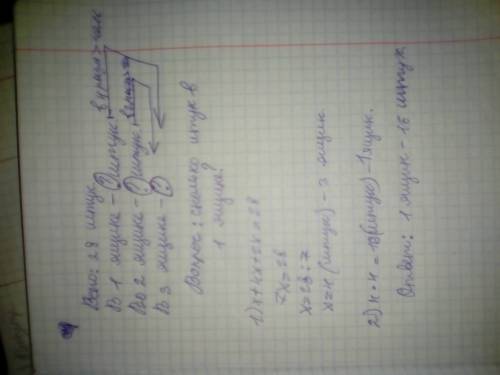 Всего: 28 штук
В 1 ящике - ? штук, в 4 раза > чем
Во 2 ящике - ? штук, в 2 раза > чем
В 3 ящике - ?
Вопрос: сколько штук в
1 ящике?
1) x+4x+2x=28
7x=28
x=28:7
x=4 (штук) - 3 ящик
2) 4·4=16(штук) - 1 ящик.
Ответ: 1 ящик - 16 штук